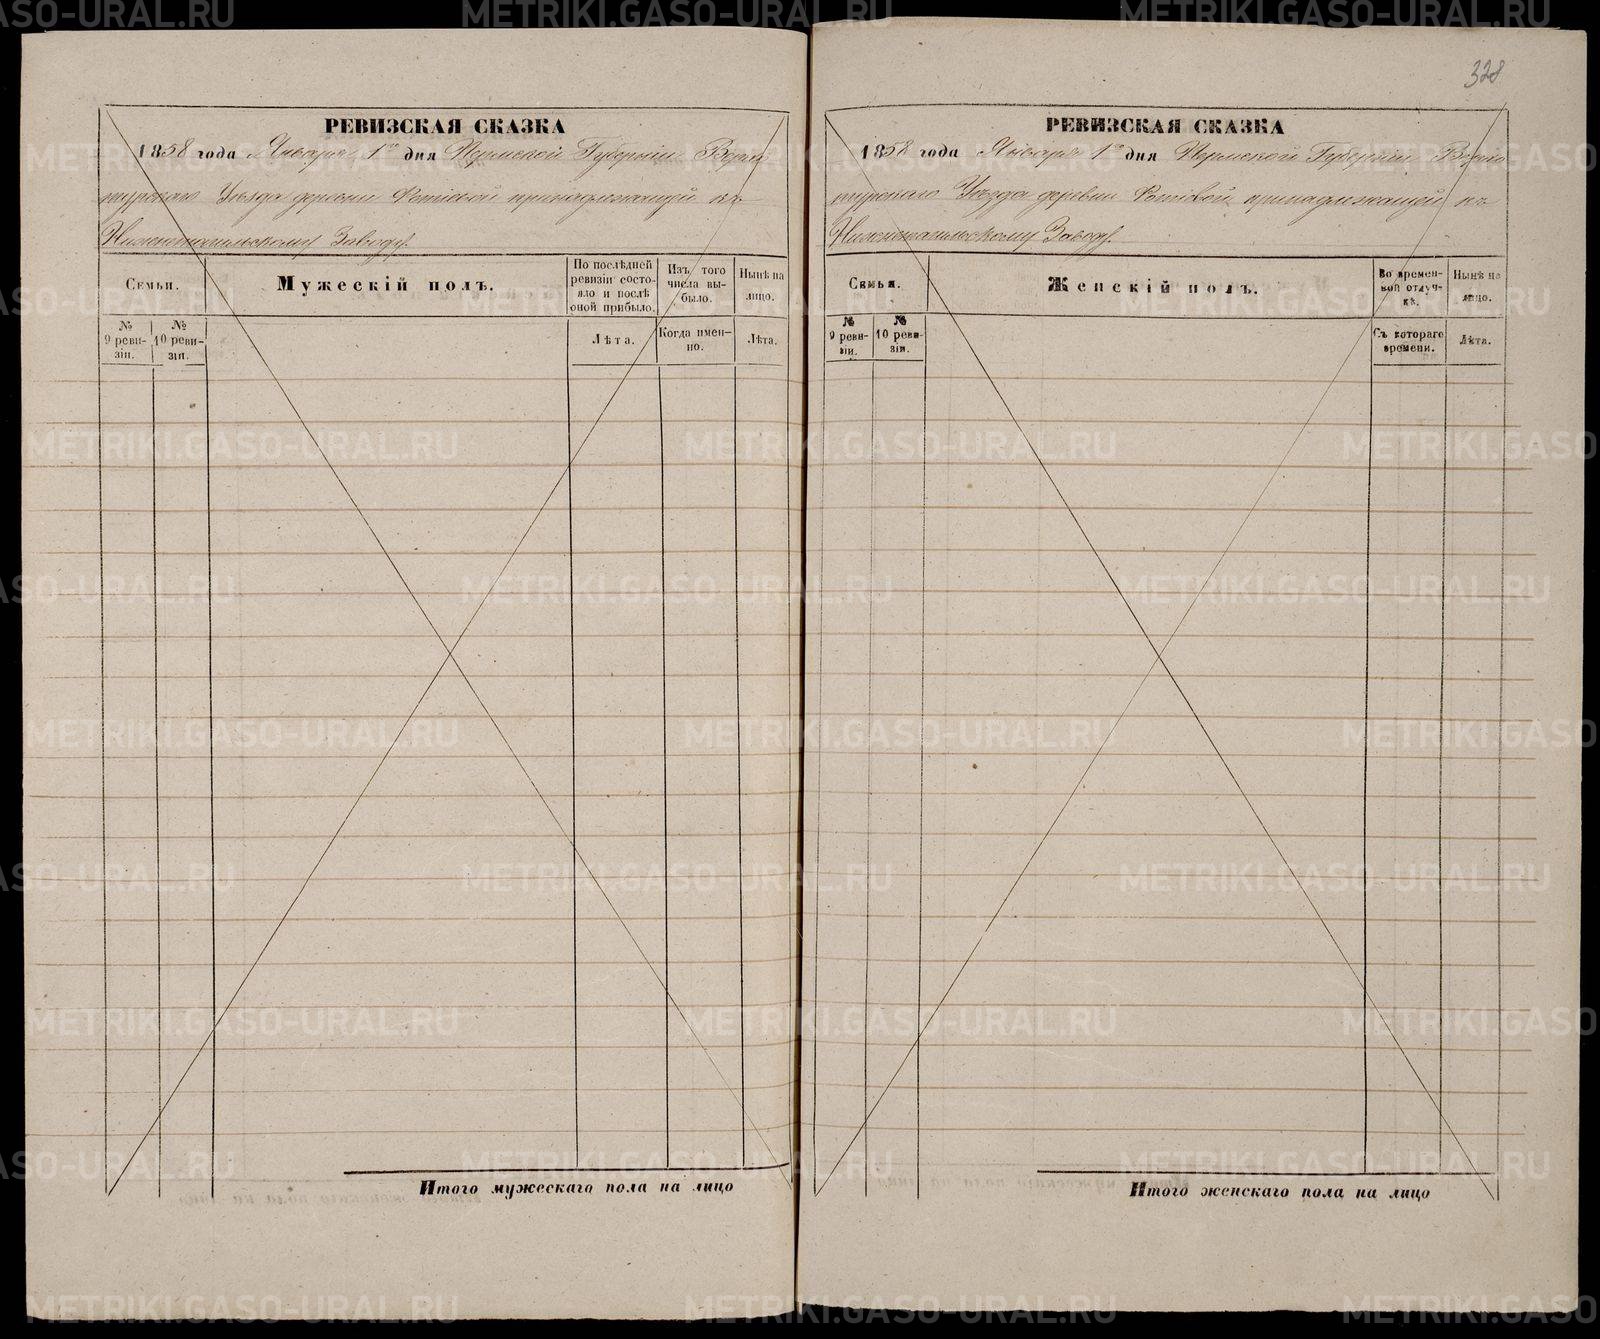 328
РЕВИЗСКАЯ СКАЗКА
1858 года Января 1го дня Пермской Губерніи Верхо
турскаго Уѣзда деревни принадлежащей къ
Нижнетагильскому Заводу.
Семьи.
Мужескій полъ.
По послѣдней ревизіи состояло и послѣ оной прибыло.
Изъ того числа выбыло.
Нынѣ на лицо.
№ 9 ревизіи.
№ 10 ревизіи.
Лѣта.
Когда именно.
Лѣта.
Итого мужескаго пола на лицо
РЕВИЗСКАЯ СКАЗКА
1858 года Января 1го дня Пермской Губерніи Верхо
турскаго Уѣзда деревни принадлежащей къ
Нижнетагильскому Заводу.
Семьи.
Женскій полъ.
Во временной отлучкѣ.
Нынѣ на лицо.
№ 9 ревизіи.
№ 10 ревизіи.
Съ котораго времени.
Лѣта.
Итого женскаго пола на лицо
METRIKI.GASO-URAL.RU